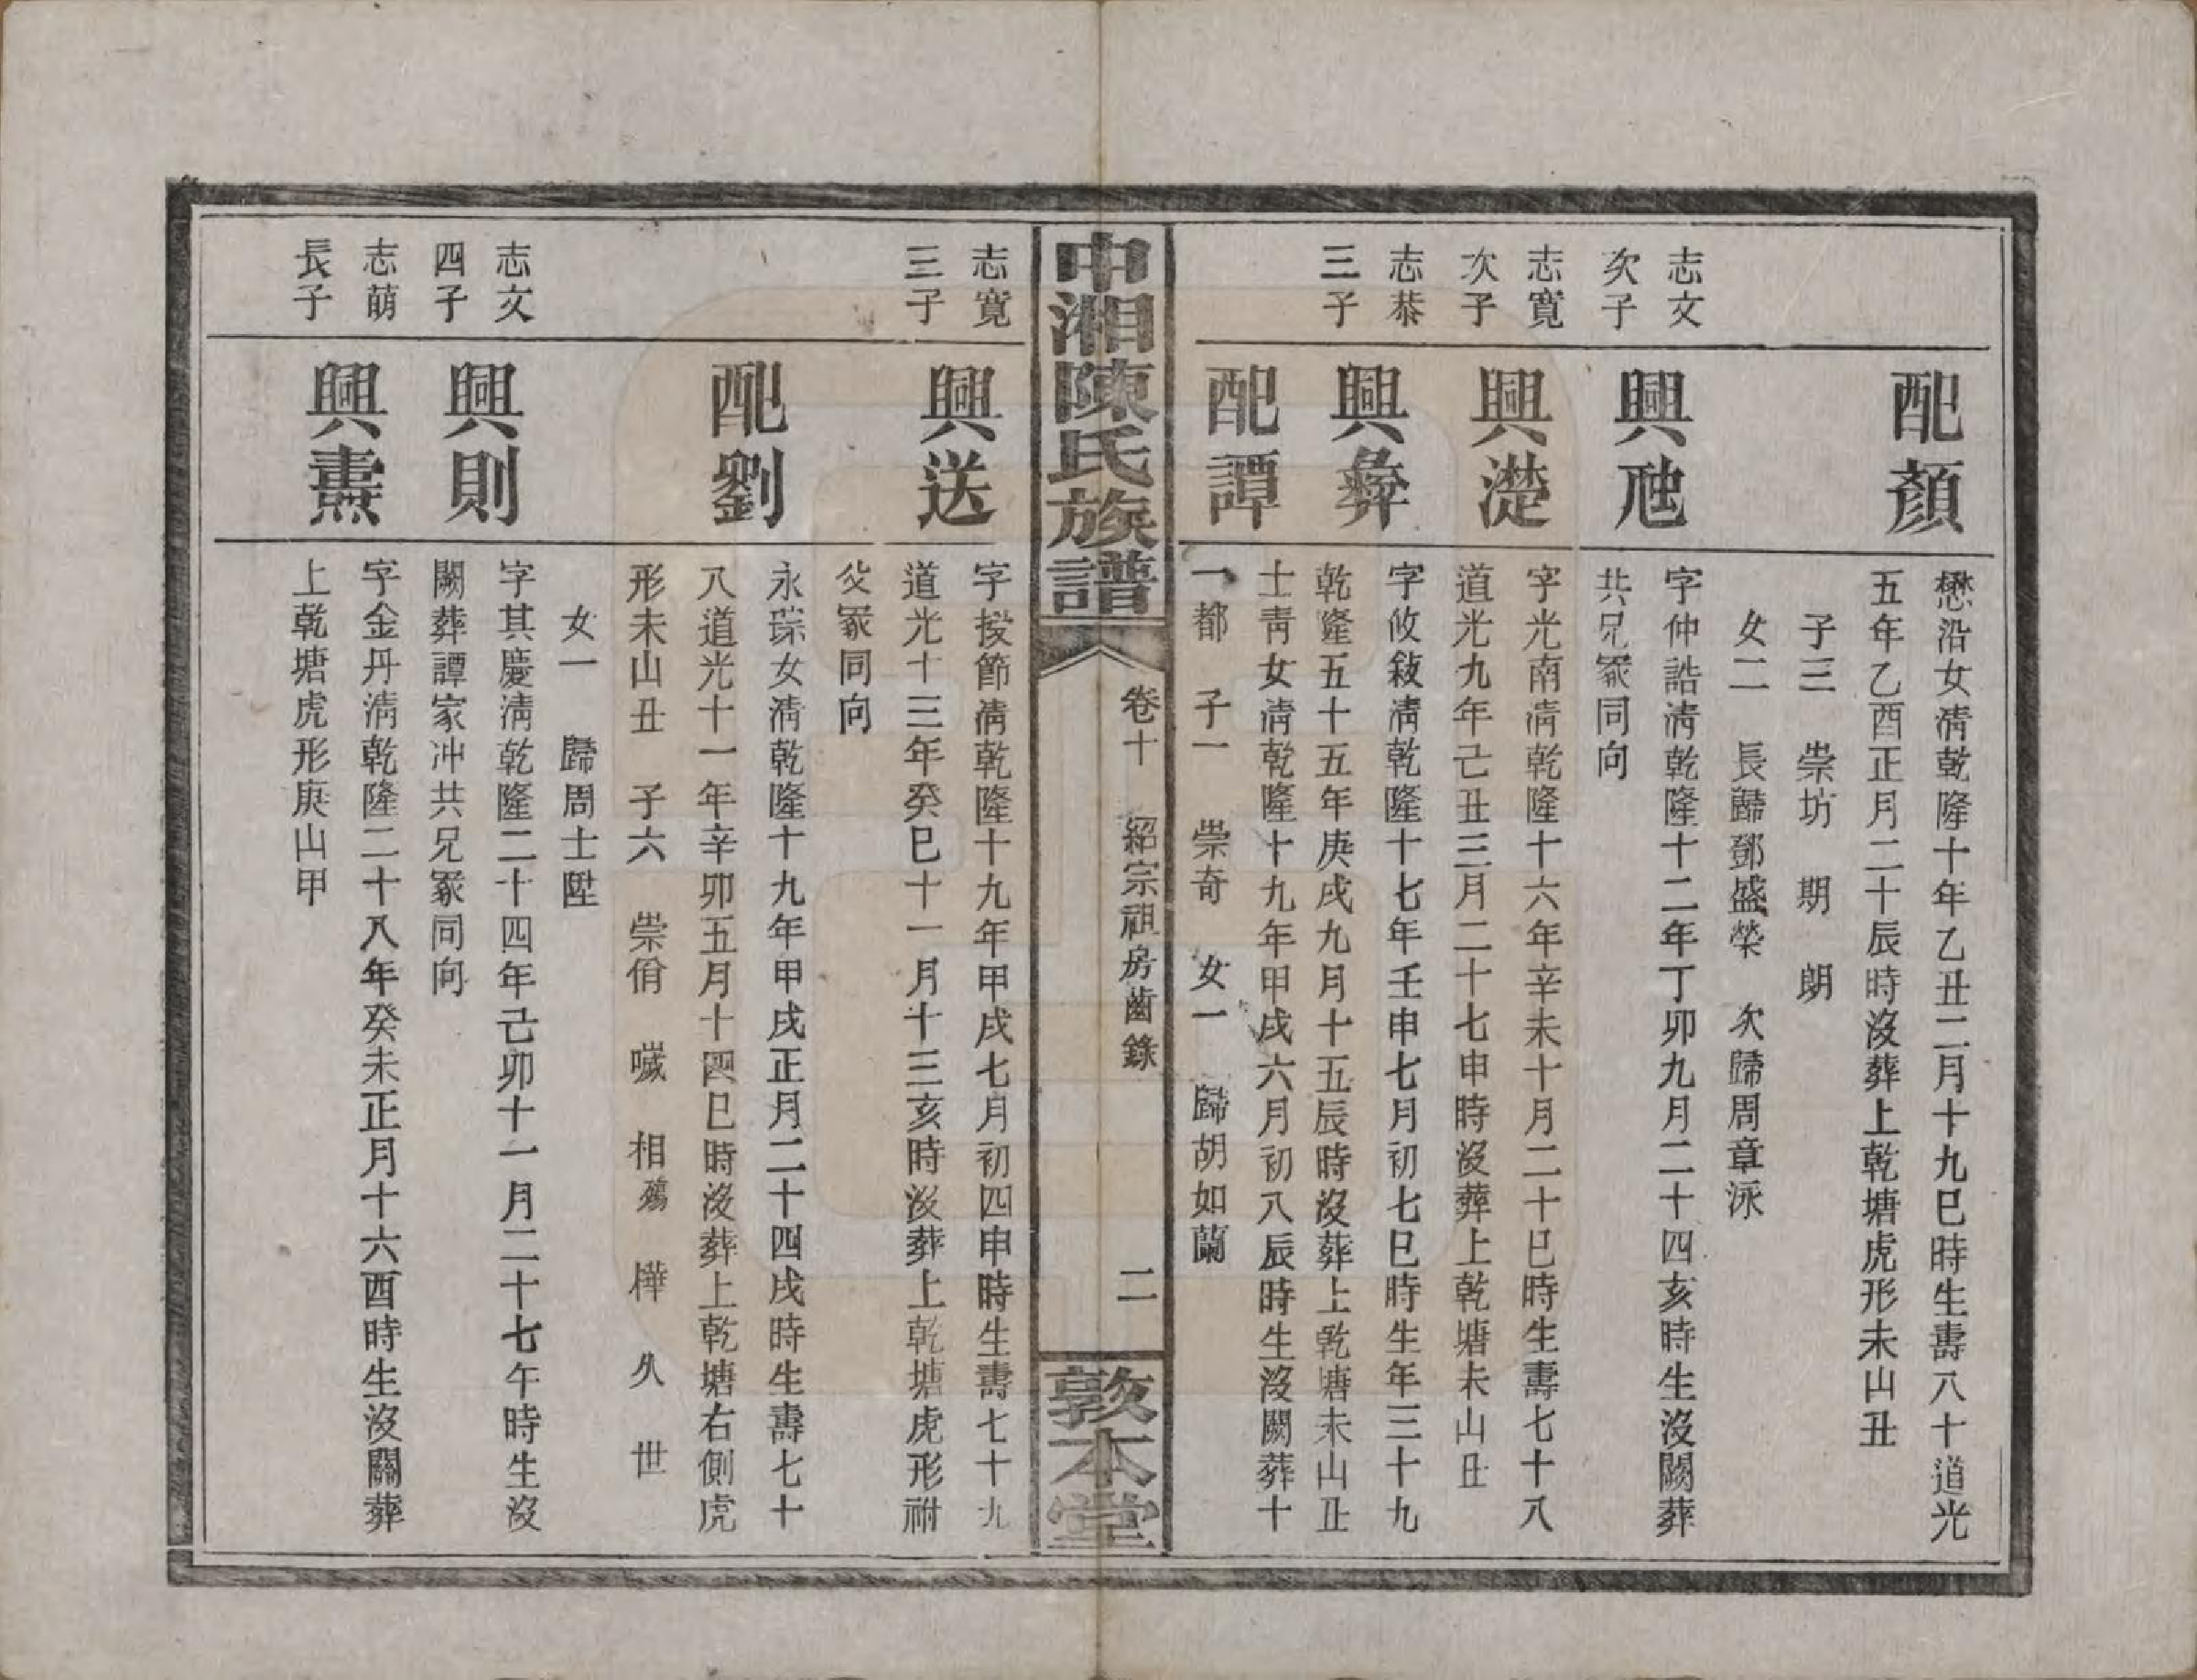 配顏
懋沿女淸乾隆十年乙丑二月十九巳時生壽八十道光
五年乙酉正月二十辰時沒葬上乾塘虎形未山丑
子三　崇坊　期　朗
女二　長歸鄧盛榮　次歸周章泳
志文
次子
興虺
字仲誥淸乾隆十二年丁卯九月二十四亥時生沒闕葬
共兄冢同向
志寬
次子
興濋
字光南淸乾隆十六年辛未十月二十巳時生壽七十八
道光九年己丑三月二十七申時沒葬上乾塘未山丑
志恭
三子
興彝
字攸敍淸乾隆十七年壬申七月初七巳時生年三十九
乾隆五十五年庚戌九月十五辰時沒葬上乾塘未山丑
配譚
士靑女淸乾隆十九年甲戌六月初八辰時生沒闕葬十
一都　子一　崇奇　女一　歸胡如蘭
中湘陳氏族譜
卷十　紹宗祖房齒錄
二
敦本堂
志寬
三子
興送
字授節淸乾隆十九年甲戌七月初四申時生壽七十九
道光十三年癸巳十一月十三亥時沒葬上乾塘虎形祔
父冢同向
配劉
永琮女淸乾隆十九年甲戌正月二十四戌時生壽七十
八道光十一年辛卯五月十四巳時沒葬上乾塘右側虎
形未山丑　子六　崇佾　噦　相殤　樺　久　世
女一　歸周士陞
志文
四子
興則
字其慶淸乾隆二十四年己卯十一月二十七午時生沒
闕葬譚家冲共兄冢同向
志萠
長子
興燾
字金丹淸乾隆二十八年癸未正月十六酉時生沒闕葬
上乾塘虎形庚山甲